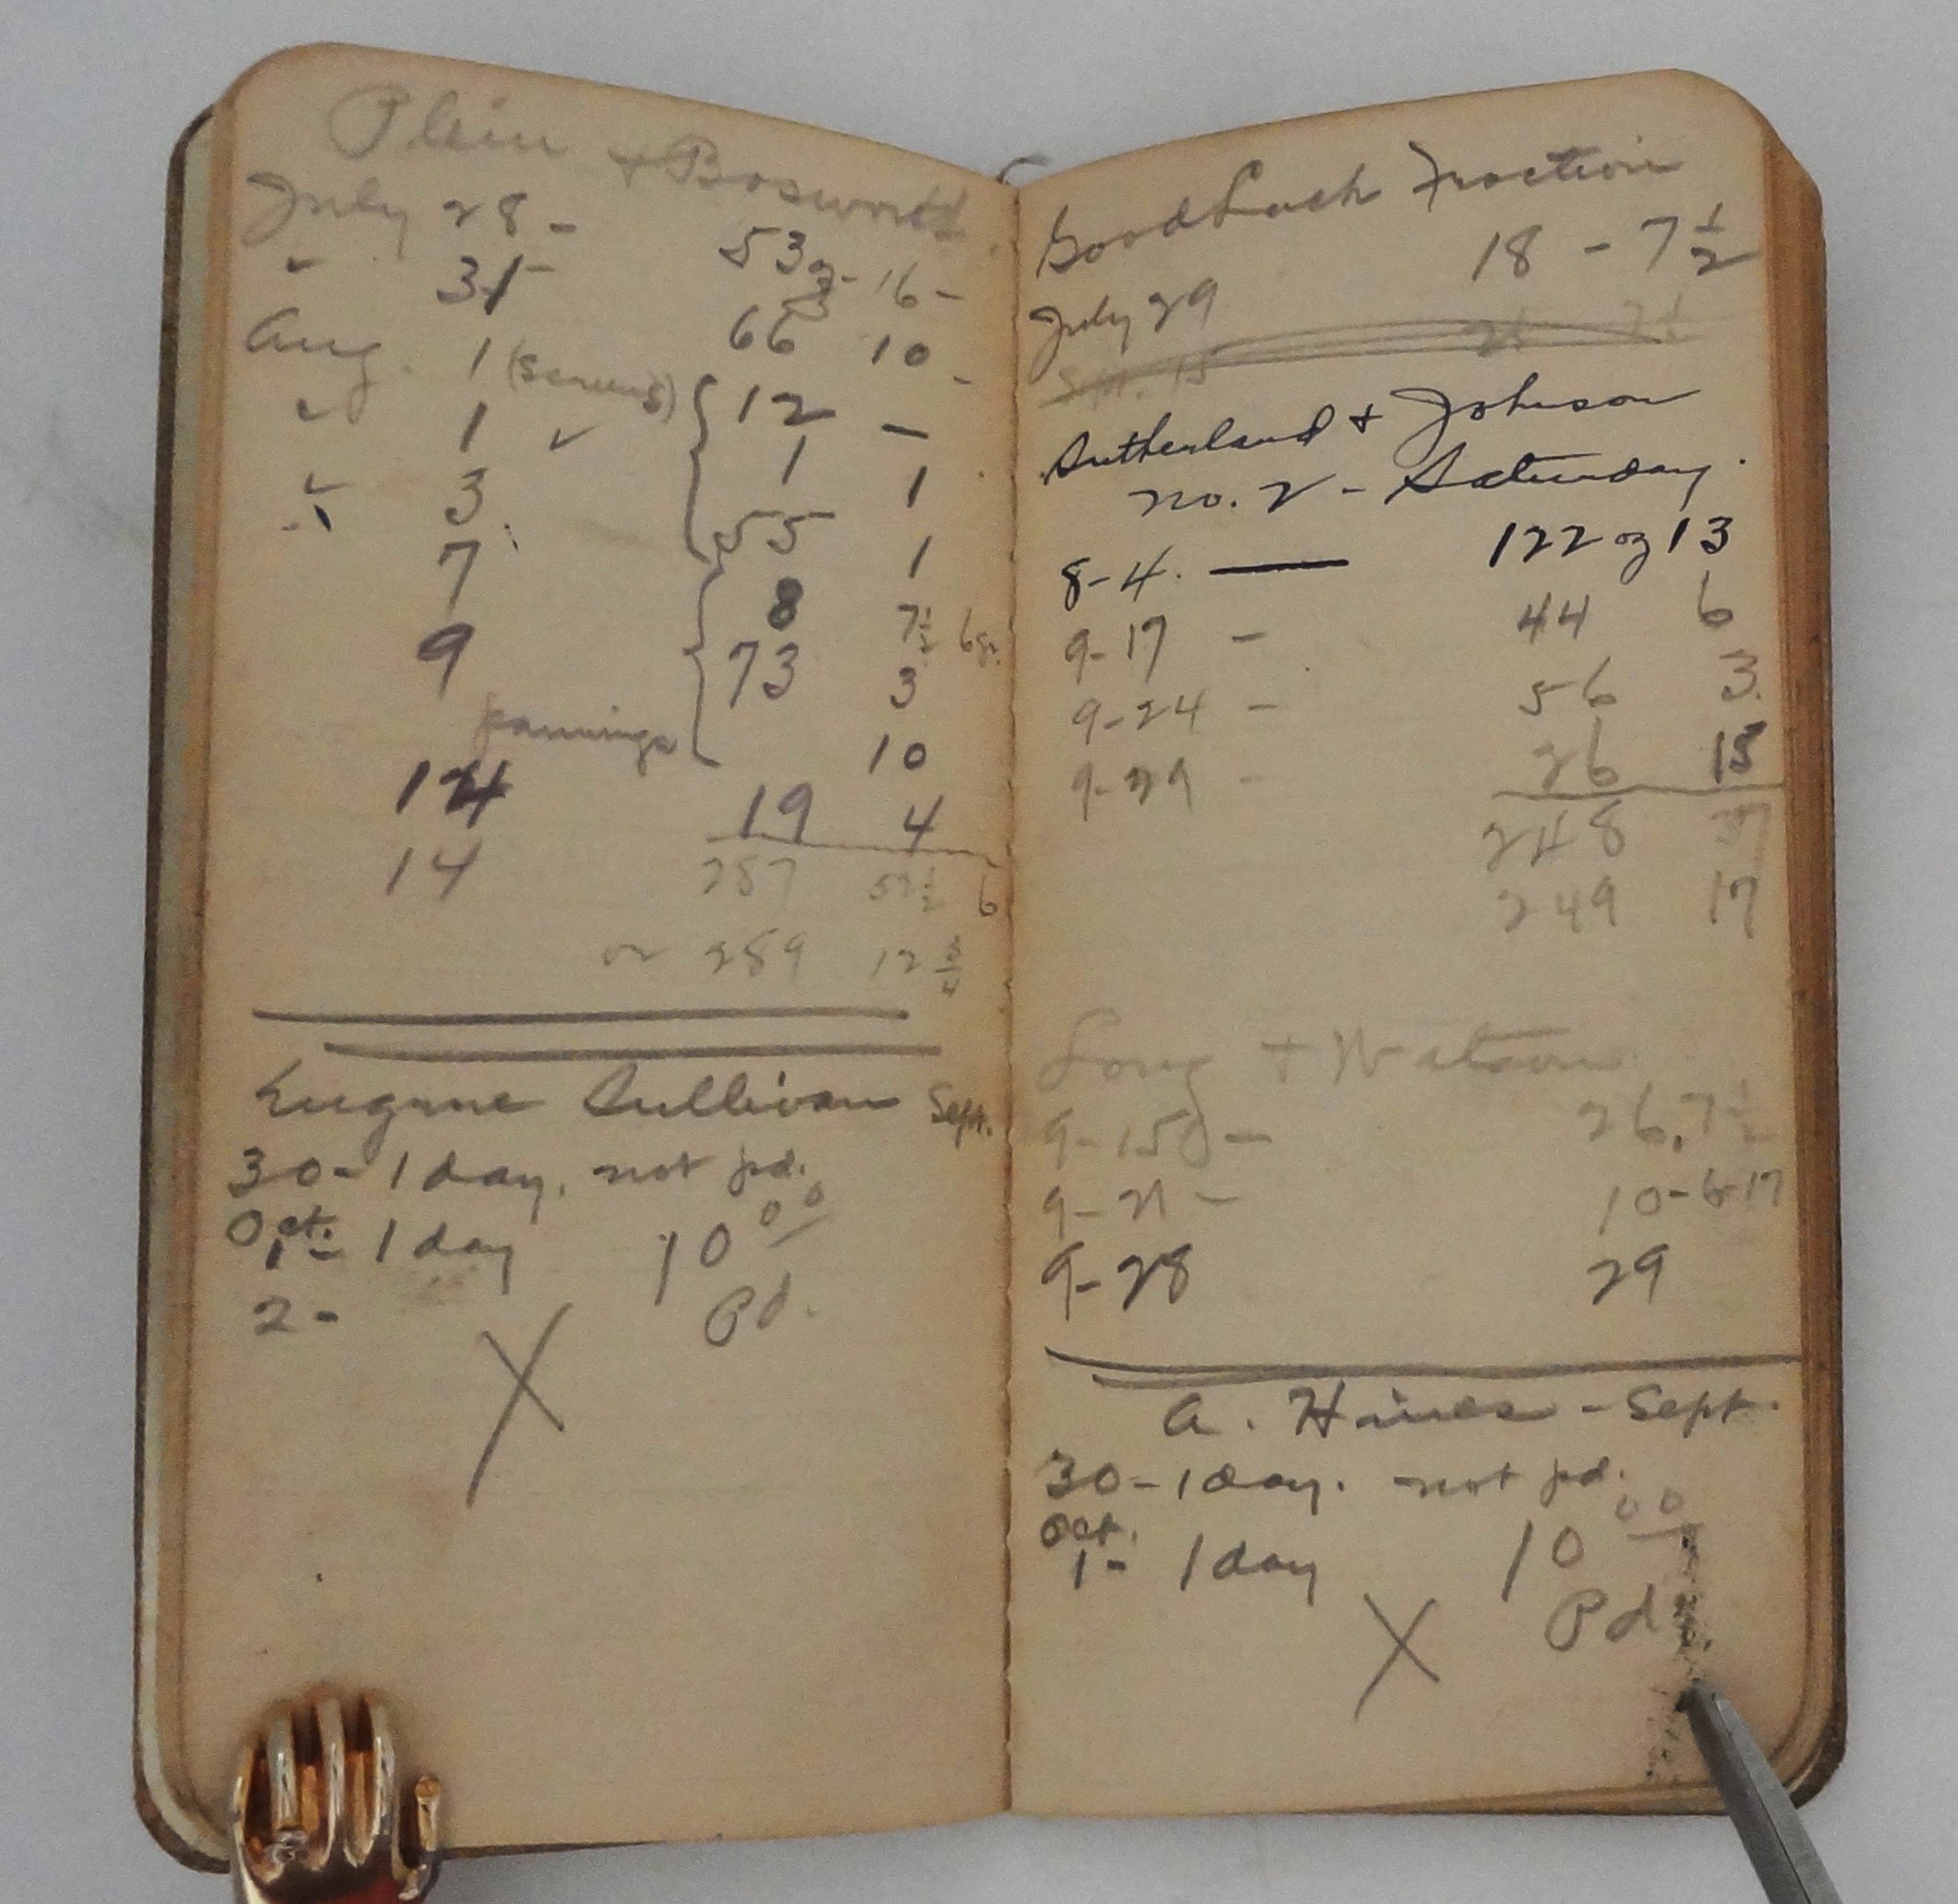 Plein + Bosworth.
July 28 - 53 oz - 16 -
" 31 - 66 10 -
Aug. 1 (screws) 12 -
" 1 " 1 1
" 3 55 1
7 8 7½ 6gr.
9 73 3
pannings 10
14 19 4
14 287 52½ 6
or 289 12 ¾
Eugene Sullivan Sept.
30 - 1 day. not pd.
Oct.
1 - 1 day 10 00
2 - Pd.
X
Good Luck Fraction
18 - 7½
July 29
Sutherland + Johnson
no. 2 - Saturday.
8-4. — 122 oz 13
9-17 - 44 6
9-24 - 56 3.
9-29 - 26 15
248 37
249 17
Long + Watson
9-15 - 26.7½
9-21 - 10-6-17
9-28 29
A. Haines - Sept.
30 - 1 day. not pd.
Oct.
1 - 1 day 10 00
Pd
X